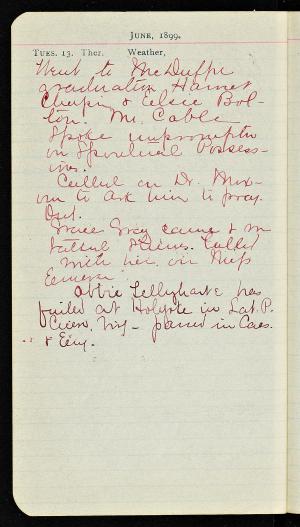 JUNE, 1899.
TUES. 13. Ther. Weather,
Went to McDuffie
graduation Harriet
Chapin & Elsie Bol-
ton. Mr. Cable
Spoke impromptu
on Spiritual Possess-
ions.
Called on Dr. Mox-
om to ask him to pray.
Out.
Grace Gray came & we
talked. Called
with her on Miss
Emerson
Abbie has
failed at Holyoke in Lat. P.
Cicero, Virg - passed in Caes.
&